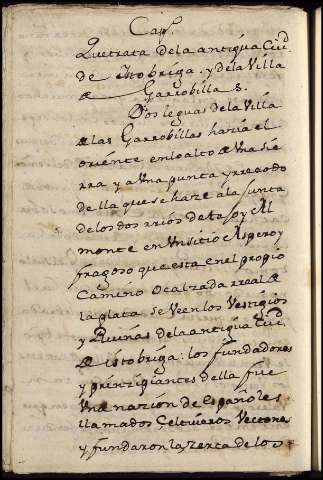 Capº.
Que trata de la antigua Ciuᵈ.
de Istobriga. y de la Villa
de Garrobillas.
Dos leguas de la Villa
de las Garrobillas hazia el
oriente en lo alto de Vna sie
rra y a Vna punta y rrecodo
de lla que se haze a la junta
de los dos rrios de tajo y Al
monte en Vn sitio Aspero y
fragoso que esta en el propio
Camino o calzada rreal de
la plata se Veen los Vestigios
y Ruinas de la antigua Ciuᵈ.
de istobriga: los fundadores
y prinzipiantes della fue
Vna nazion de Españoles
llamados Çeltiueros Vectones
y fundaron la zerca de los